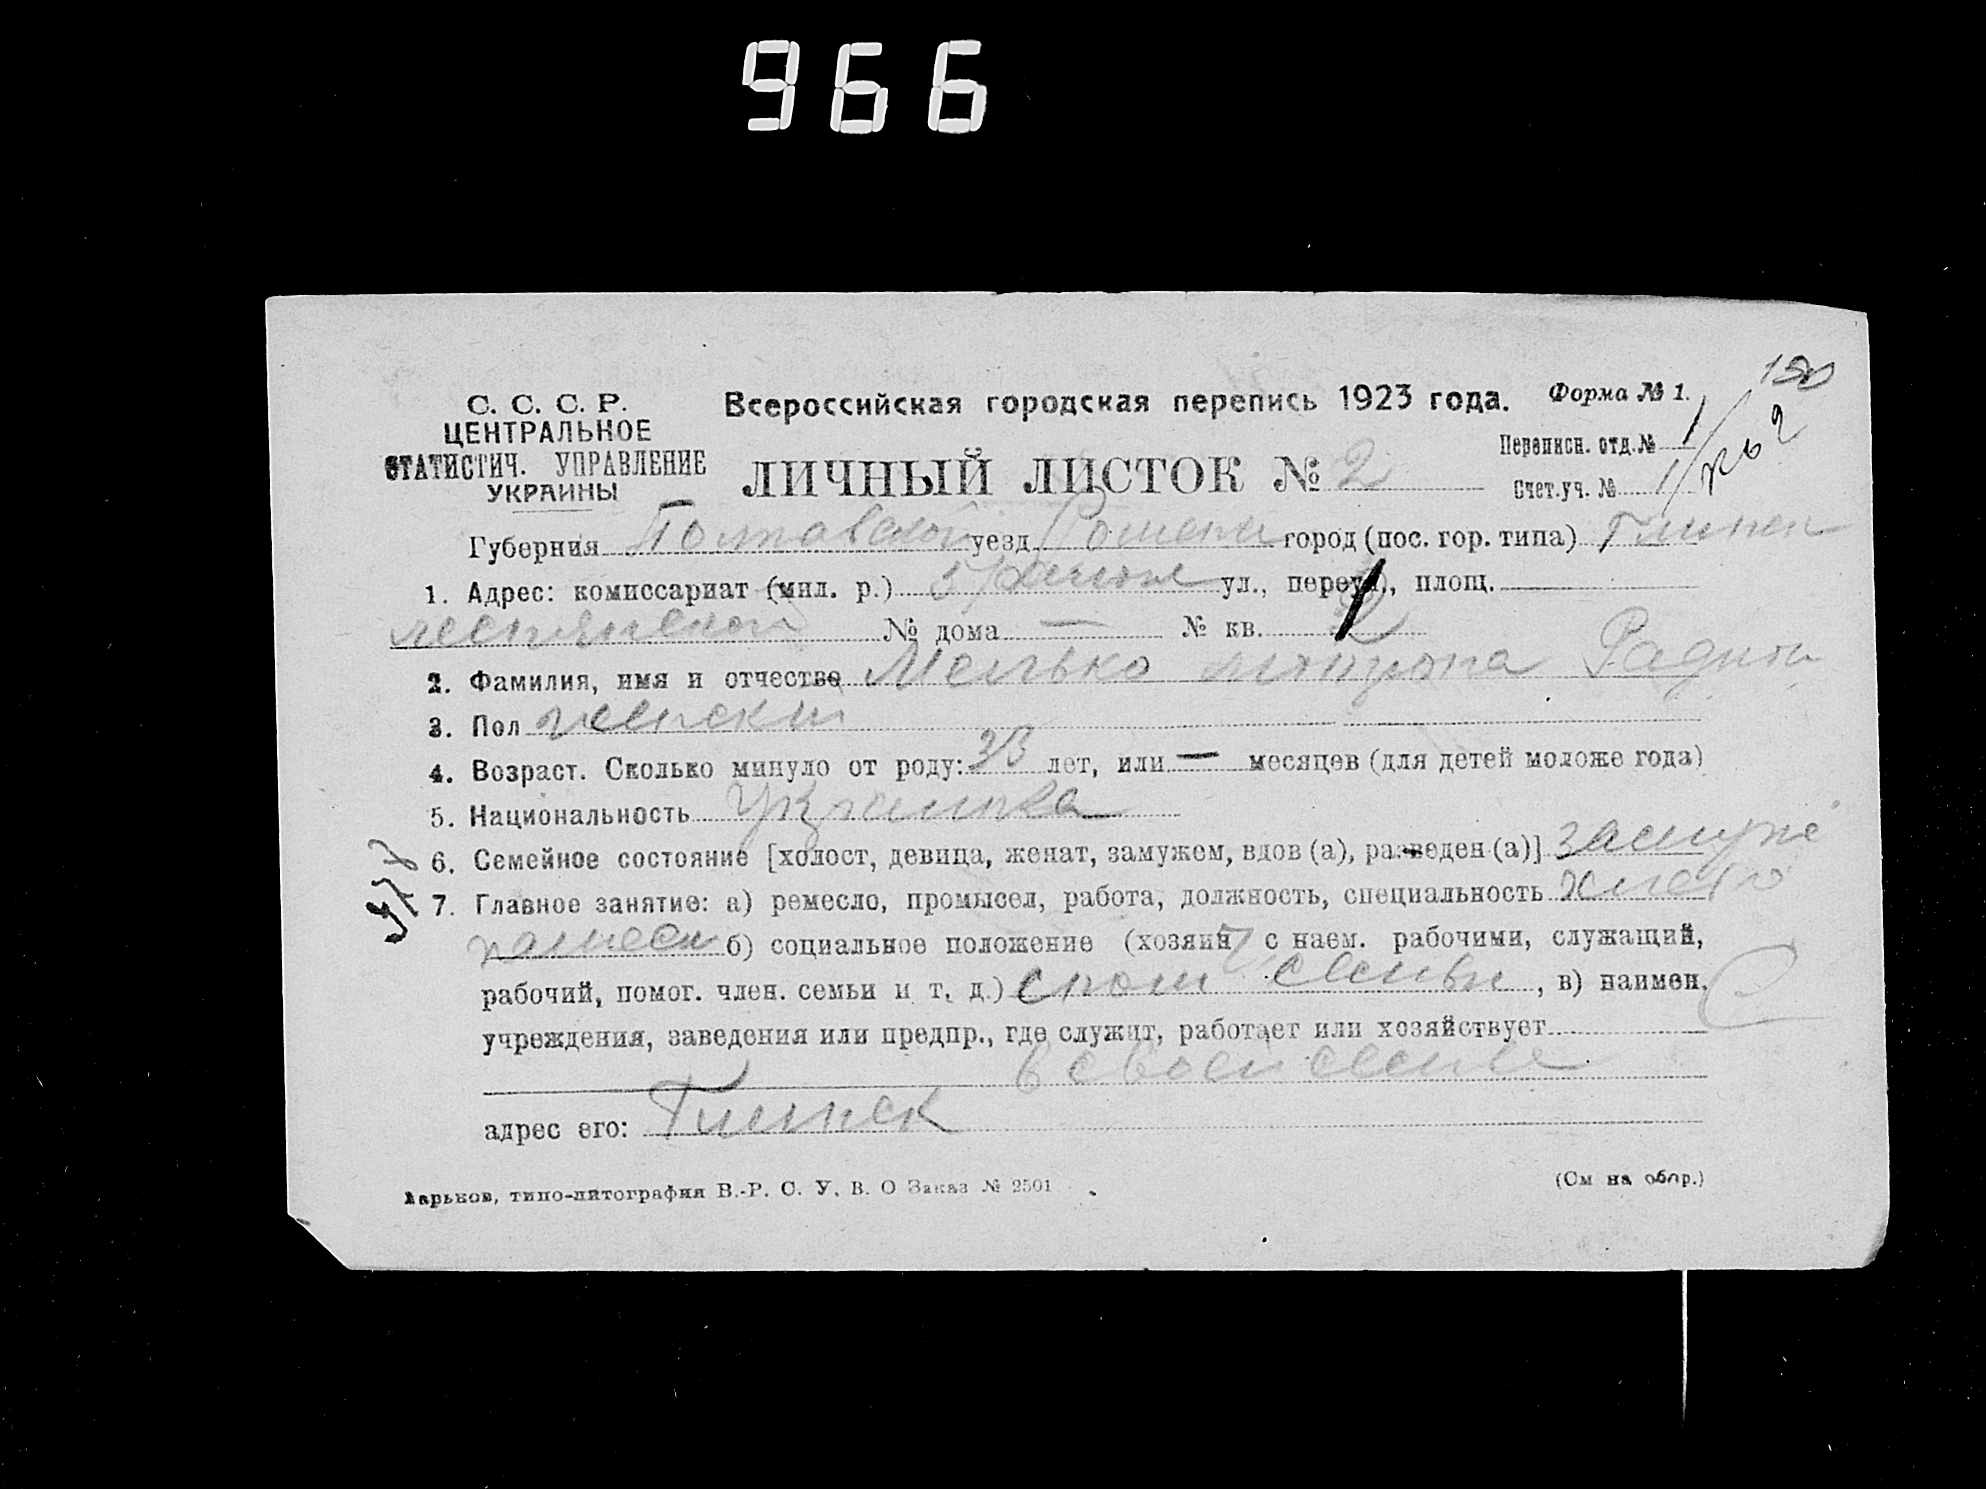 966
С. С. С. Р.
ЦЕНТРАЛЬНОЕ
СТАТИСТИЧ. УПРАВЛЕНИЕ
УКРАИНЫ
Всероссийская городская перепись 1923 года.
Форма № 1.
ЛИЧНЫЙ ЛИСТОК № 2
Переписн. отд. № 1
Счет. уч. № 1
Губерния Полтавской уезд Ромени город (пос. гор. типа) Глинск
1. Адрес: комиссариат (мил. р.) ул., переул., площ.
№ дома — № кв. 2
2. Фамилия, имя и отчество Мелько
3. Пол женски
4. Возраст. Сколько минуло от роду: 33 лет, или — месяцев (для детей моложе года)
5. Национальность Украинка
6. Семейное состояние [холост, девица, женат, замужем, вдов (а), разведен (а)] замуже
7. Главное занятие: а) ремесло, промысел, работа, должность, специальность хлебо
пашест б) социальное положение (хозяин с наем. рабочими, служащий,
рабочий, помог. член. семьи и т. д.) семьи, в) наимен.
учреждения, заведения или предпр., где служит, работает или хозяйствует
в своей семье
адрес его: Глинск
Харьков, типо-литография В.-Р. С. У. В. О Заказ № 2501
(См на обор.)